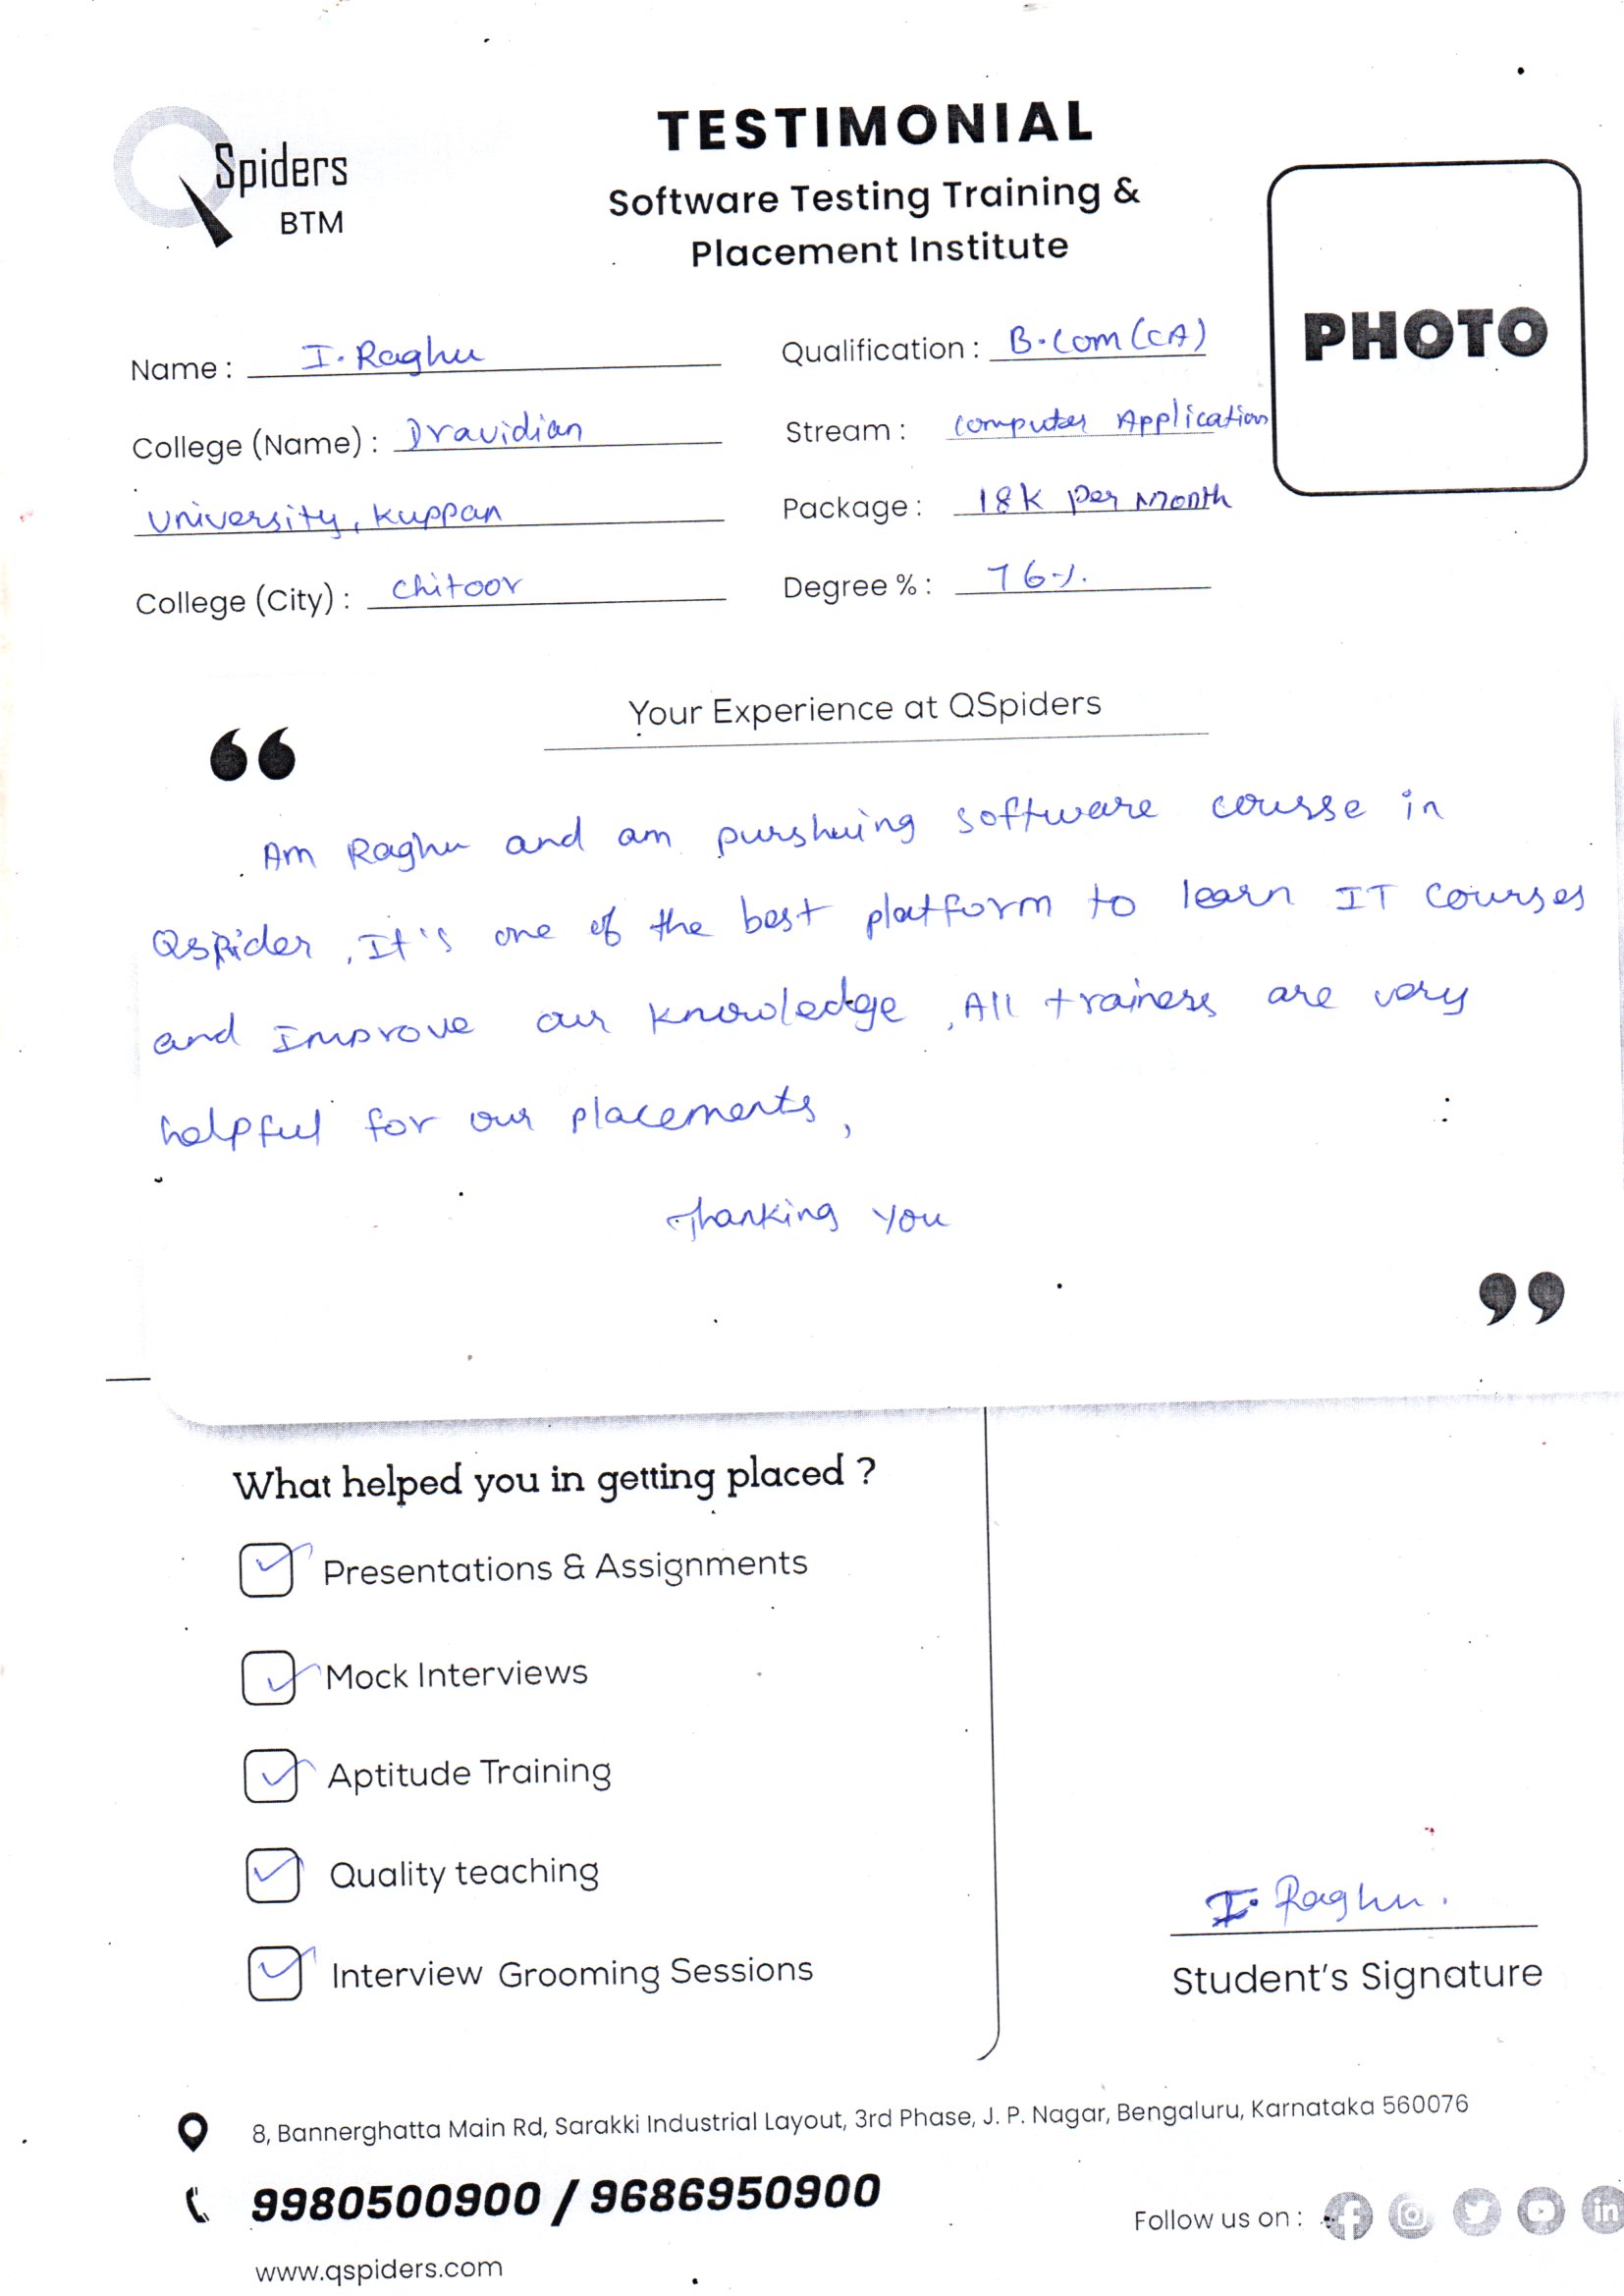 Spiders
BTM
TESTIMONIAL
Software Testing Training &
Placement Institute
PHOTO
Name : I. Raghu
Qualification : B.Com (CA)
College (Name) : Dravidian
Stream : Computer Application
University, Kuppan
Package : 18K Per Month
College (City) : Chitoor
Degree % : 76%
Your Experience at QSpiders
“
Am Raghu and am purshuing software course in
Qspider, It's one of the best platform to learn IT Courses
and Improve our knowledge, All trainers are very
helpful for our placements,
Thanking You
”
What helped you in getting placed ?
Presentations & Assignments
Mock Interviews
Aptitude Training
Quality teaching
Interview Grooming Sessions
I. Raghu.
Student’s Signature
8, Bannerghatta Main Rd, Sarakki Industrial Layout, 3rd Phase, J. P. Nagar, Bengaluru, Karnataka 560076
9980500900 / 9686950900
Follow us on :
www.qspiders.com